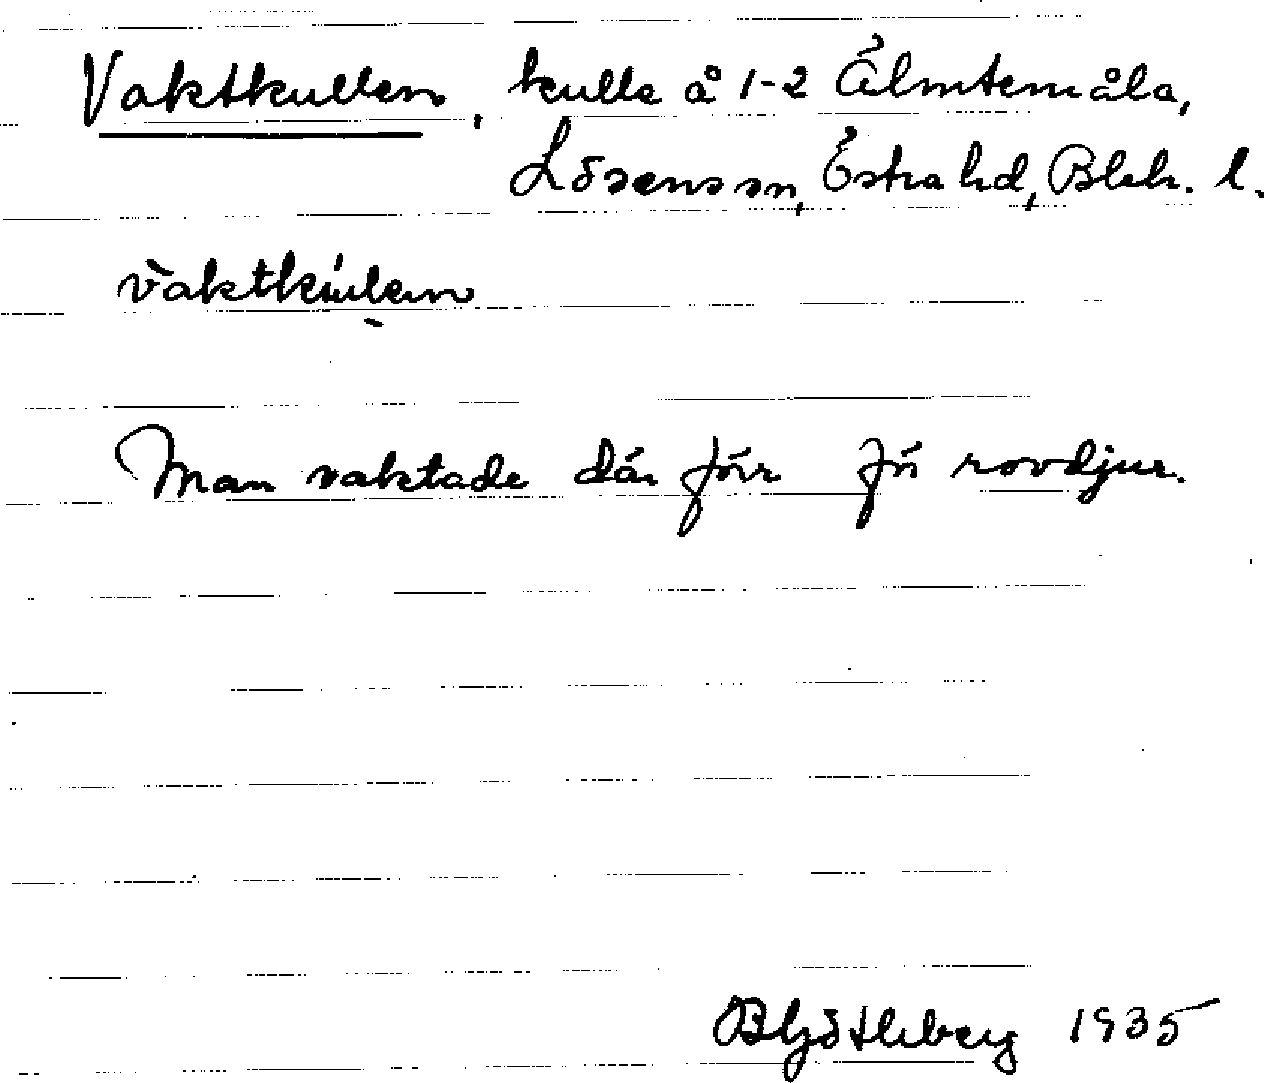 Vaktkullen, kulle å 1-2 Älmtemåla,
Lösens sn, Östra hd, Blek. l.
vàktkúlen
Man vaktade där förr för rovdjur.
B Hjö Hleberg 1935